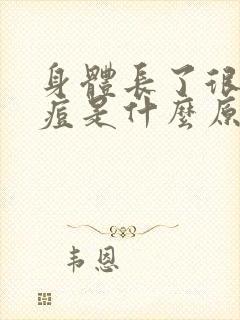 身體長了很
痘是什麼原
韦恩